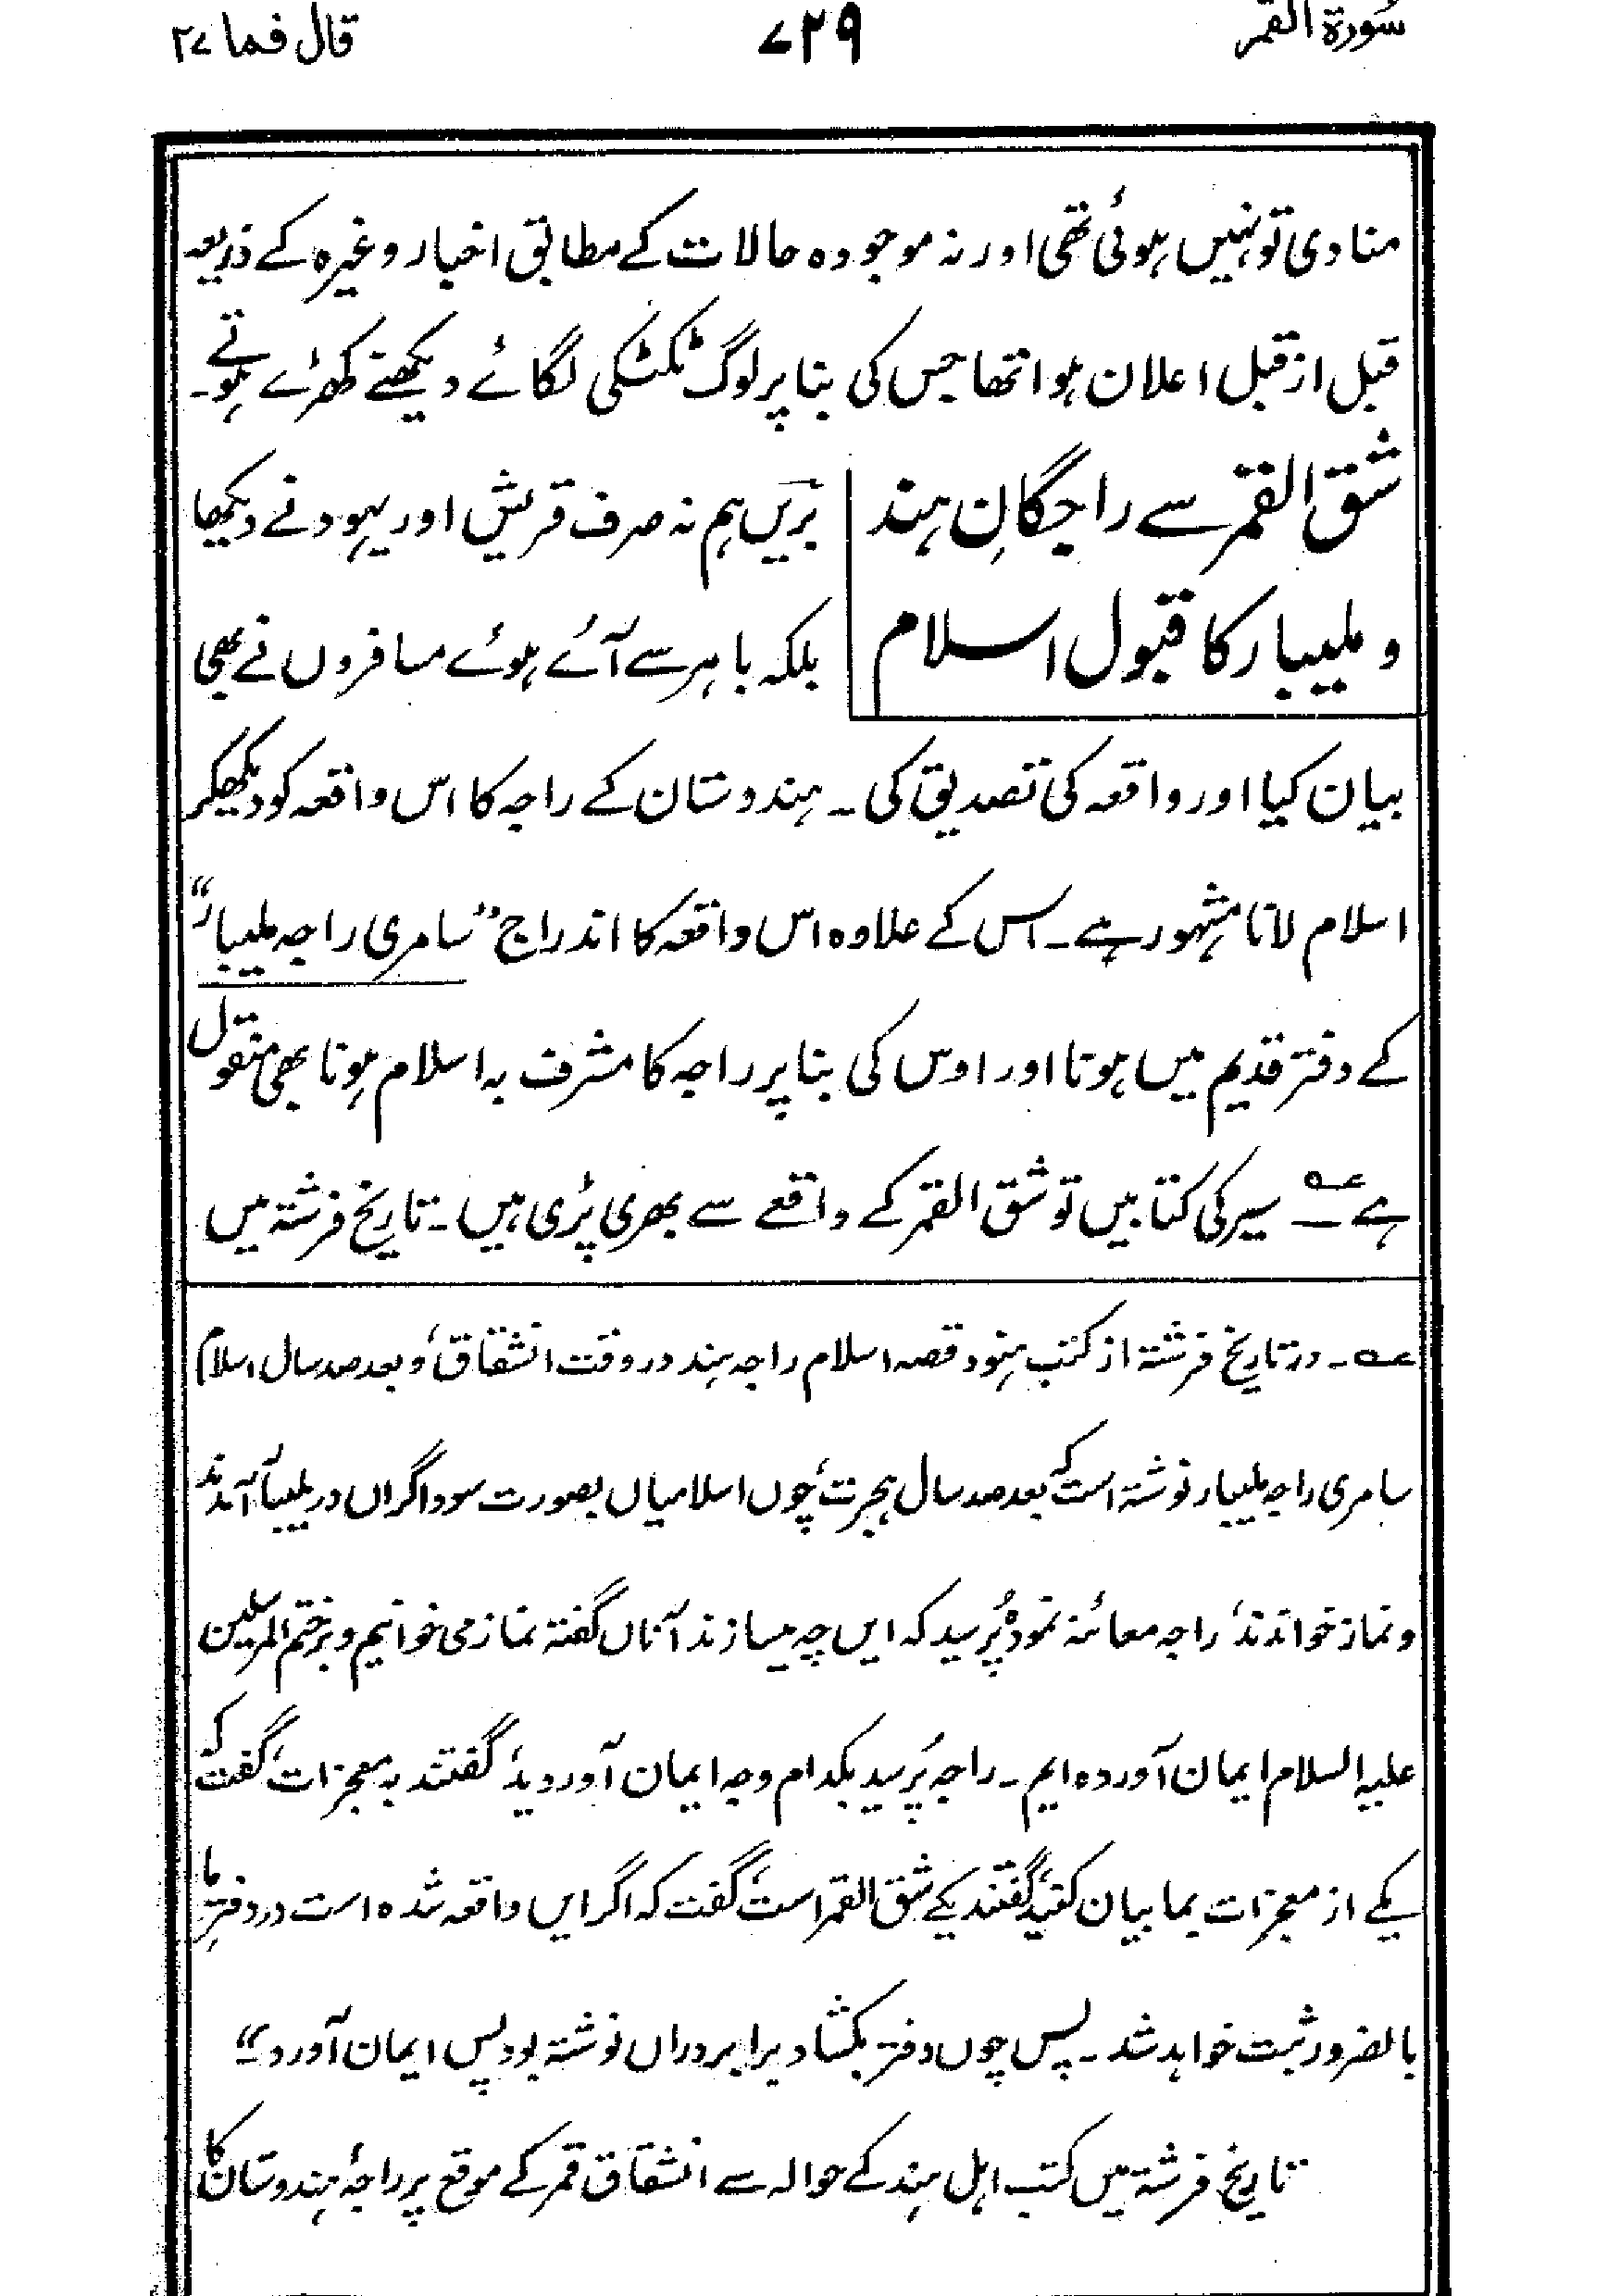 سُورة القمر
۷۲۹
قال فما ۲۷
منادی تو نہیں ہوئی تھی اور نہ موجودہ حالات کے مطابق اخبار وغیرہ کے ذریعہ
قبل از قبل اعلان ہوا تھا جس کی بنا پر لوگ ٹکٹکی لگائے دیکھتے کھڑے ہوتے۔
شق القمر سے راجگانِ ہند
و ملیبار کا قبول اسلام
بریں ہم نہ صرف قریش اور یہود نے دیکھا
بلکہ باہر سے آئے ہوئے مسافروں نے بھی
بیان کیا اور واقعہ کی تصدیق کی۔ ہندوستان کے راجہ کا اس واقعہ کو دیکھکر
اسلام لانا مشہور ہے۔ اس کے علاوہ اس واقعہ کا اندراج ”سامری راجہ ملیبار“
کے دفتر قدیم میں ہونا اور اوس کی بنا پر راجہ کا مشرف بہ اسلام ہونا بھی منقول
ہے عہ۔ سیر کی کتابیں تو شق القمر کے واقعے سے بھری پڑی ہیں۔ تاریخ فرشتہ میں
عہ۔ در تاریخ فرشتہ از کتب ہنود قصہ اسلام راجہ ہند در وقت انشقاق، و بعد صد سال اسلام
سامری راجہ ملیبار نوشتہ است کہ بعد صد سال ہجرت، چوں اسلامیاں بصورت سوداگراں در ملیبار آمدند
و نماز خواندند، راجہ معائنہ نمودہ پُرسید کہ ایں چہ میسازند آناں گفتہ نماز می خوانیم و بر ختم المرسلین
علیہ السلام ایمان آوردہ ایم۔ راجہ پُرسید بکدام وجہ ایمان آوردید، گفتند بہ معجزات، گفت کہ
یکے از معجزات بما بیان کنید، گفتند یکے شق القمر است، گفت کہ اگر ایں واقعہ شدہ است در دفترِ ما
بالضرور ثبت خواہد شد۔ پس چوں دفتر بکشادیرا بر دراں نوشتہ بود پس ایمان آورد“
تاریخ فرشتہ میں کتب اہل ہند کے حوالہ سے انشقاق قمر کے موقع پر راجۂ ہندوستان کا